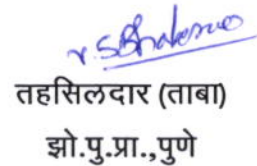 तहसिलदार (ताबा)
झो.पु.प्रा.,पुणे